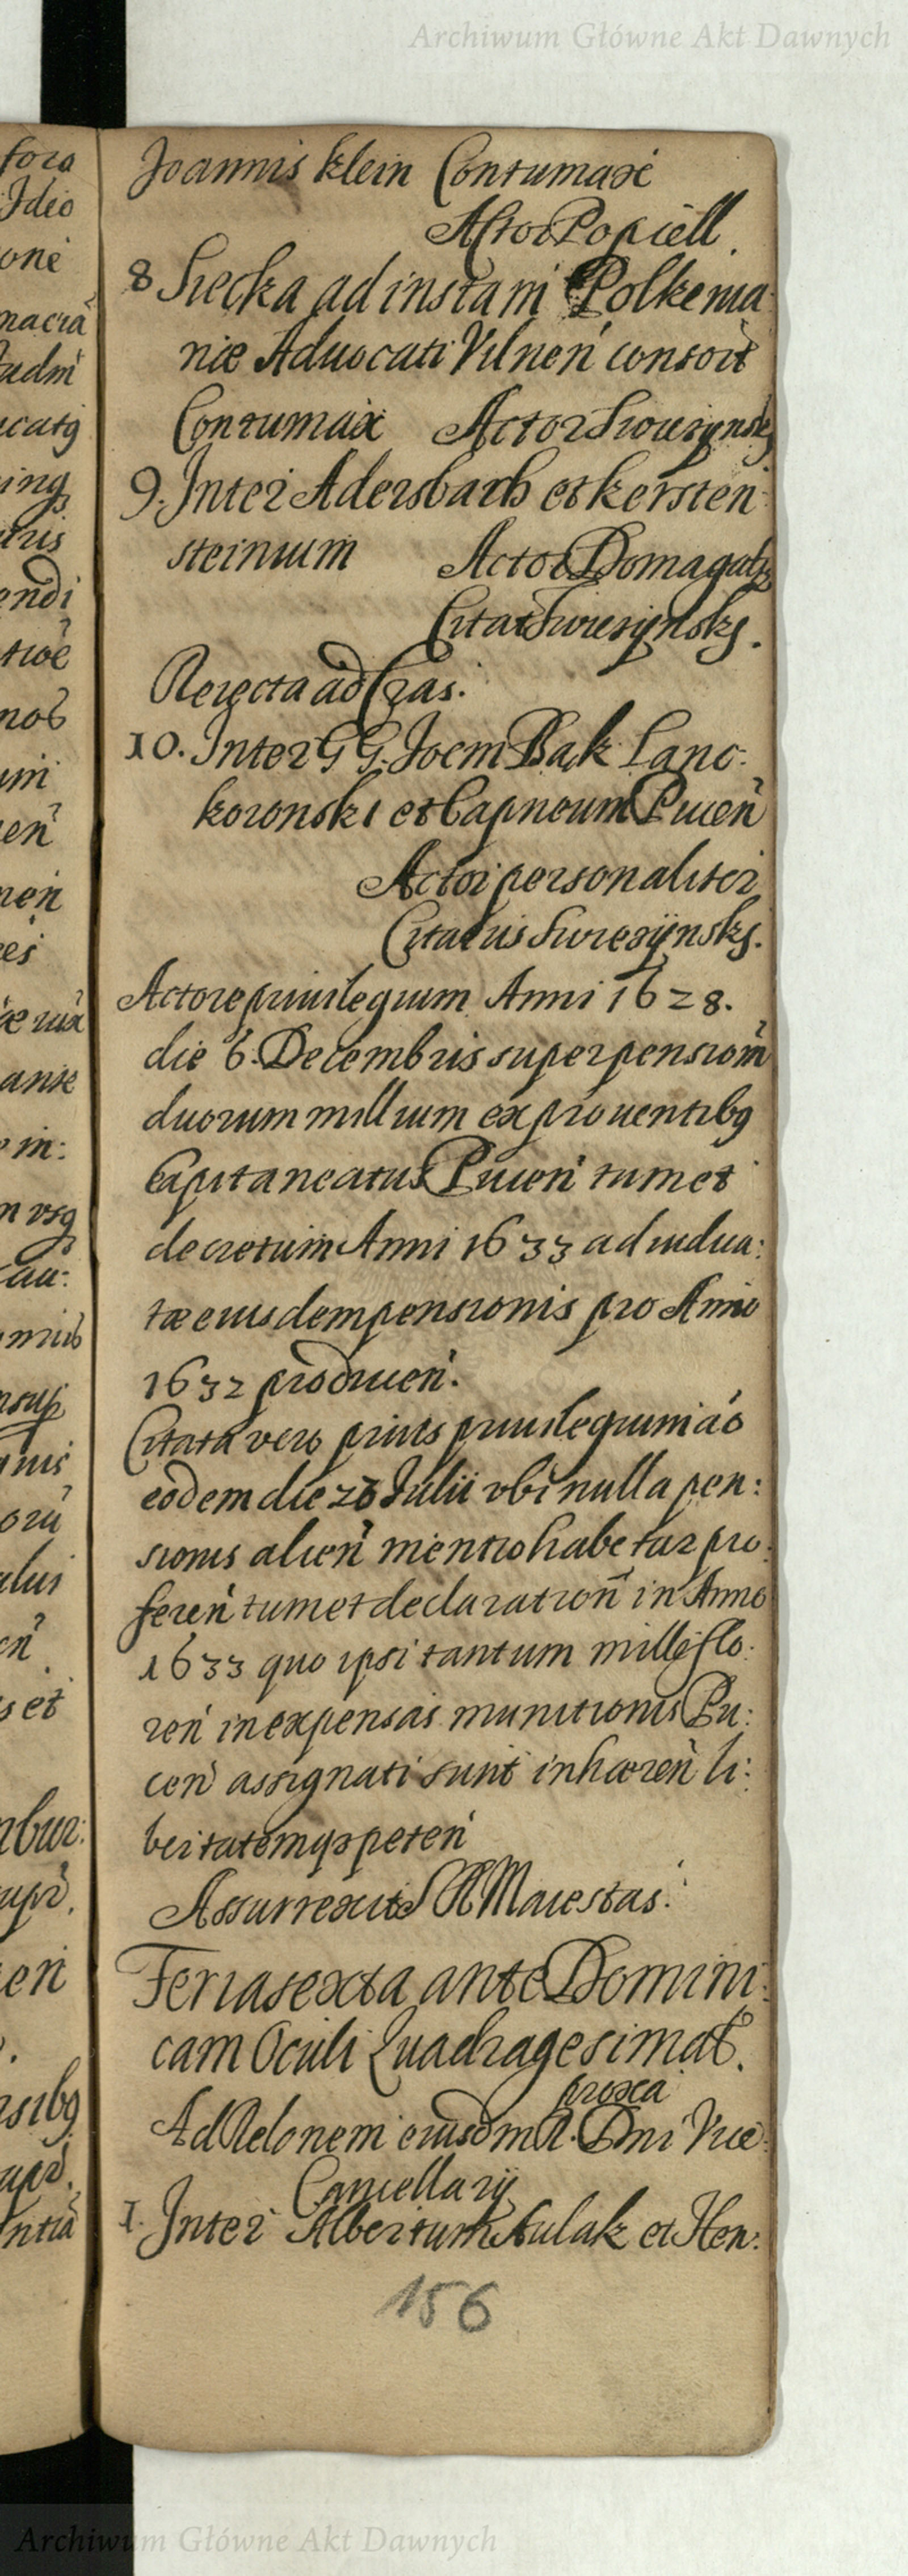 Archiwum Główne Akt Dawnych
Joannis Klein Contumax
Actor Popiell.
8 Siecka ad instam Polkenia
nie Aduocati Vilnen consort
Contumax Actor
9. Inter Adersbach et Kersten
steinium Actor Domagalz
Citat Swiesynsky.
Reiecta ad Cras.
10. Inter GG. Joem Bak Lanc:
koronski et Capneum Pucen
Actor personaliter
Citatus Swiesÿnsky.
Actore priuilegium Anni 1628.
die 6. Decembris super pensiom
duorum millium ex prouentibq
Capitaneatus Pucen tum et
decretum Anni 1633 ad indua:
tæ eiusdem pensionis pro Anno
1632 producen.
Citata vero prius priuilegium ac
eodem die 20 Julii vbi nulla pen:
sionis alien mentio habetur pro:
feren tum et declaration in Anno
1633 quo ipsi tantum mille flo:
ren in expensas munitionis Pu:
cen assignati sunt inhæren li:
bertatemqz peten
Assurrexit S R Maiestas.
Feria sexta ante Domini:
cam Oculi Quadragesimal.
proxa
Ad Relonem eiusdm R. Dni Vice
Cancellarÿ
1. Inter Albertum Kulak et Hen:
156
fora
Ideo
one
macia
catq
ing
uris
endi
nob
um
uen
nen
anie
in:
n vsq
au:
nsup
quis
oru
alui
en
s et
nbur:
en
rsibq
ntia
Archiwum Główne Akt Dawnych